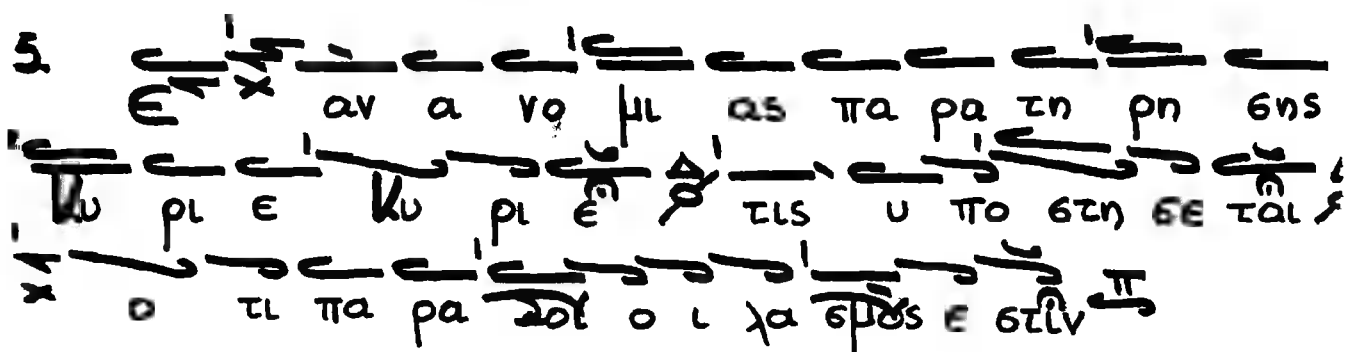 5. Ε αν α νο μι ας πα ρα τη ρη σης
Κυ ρι ε Κυ ρι ε Δ τις υ πο στη σε ται
ο τι πα ρα σοι ο ι λα σμος ε στιν π